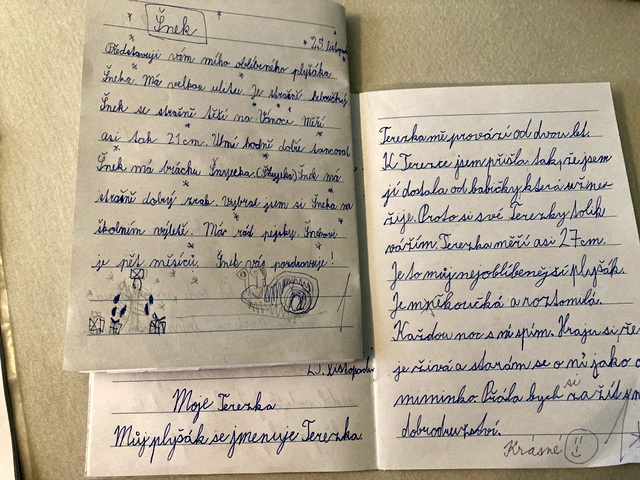 Šnek
25. listopadu
Představuji vám mého oblíbeného plyšáka
Šneka. Má velkou ulitu. Je strašně heboučký.
Šnek se strašně těší na Vánoce. Měří
asi tak 21cm. Umí hodně dobře tancovat.
Šnek má bráchu
Šnek má
strašně dobrý zrak. Vybral jsem si Šneka na
školním výletě. Má rád pejsky. Šnekovi
je pět měsíců. Šnek vás pozdravuje!
listopadu
Moje Terezka
Můj plyšák se jmenuje Terezka.
Terezka mě provází od dvou let.
K Terezce jsem přišla tak, že jsem
ji dostala od babičky, která už neº
žije. Proto si své Terezky tolik
vážím. Terezka měří asi 27cm.
Je to můj nejoblíbenější plyšák.
Je měkoučká a roztomilá.
Každou noc s ní spím. Hraju si, že
je živá a starám se o ní jako o
miminko. Přála bych si zažít
dobrodružství.
Krásné